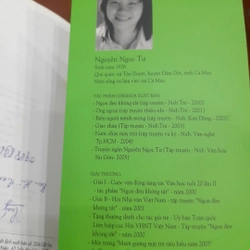 Nguyễn Ngọc Tư
Sinh năm 1976
Quê quán: xã Tân Duyệt, huyện Đầm Dơi, tỉnh Cà Mau
Hiện sống và làm việc tại Cà Mau
TÁC PHẨM CHÍNH ĐÃ XUẤT BẢN
- Ngọn đèn không tắt (tập truyện - Nxb Trẻ - 2000)
- Ông ngoại (tập truyện - Nxb Trẻ - 2001)
- Biển người mênh mông (tập truyện - Nxb Kim Đồng - 2003)
- Giao thừa (tập truyện - Nxb Trẻ - 2003)
- Nước chảy mây trôi (tập truyện và ký - Nxb Văn nghệ
Tp.HCM - 2004)
- Truyện ngắn Nguyễn Ngọc Tư (Tập truyện - Nxb Văn hóa
Sài Gòn - 2005)
GIẢI THƯỞNG:
- Giải I - Cuộc vận động sáng tác Văn học tuổi 20 lần II
- tác phẩm "Ngọn đèn không tắt" - năm 2000
- Giải B - Hội Nhà văn Việt Nam - tập truyện "Ngọn đèn
không tắt" - năm 2001
- Tặng thưởng dành cho tác giả trẻ - Uỷ ban Toàn quốc
Liên hiệp các Hội VHNT Việt Nam - tập truyện "Ngọn đèn
không tắt" - năm 2000
- Một trong "Mười gương mặt trẻ tiêu biểu năm 2003"